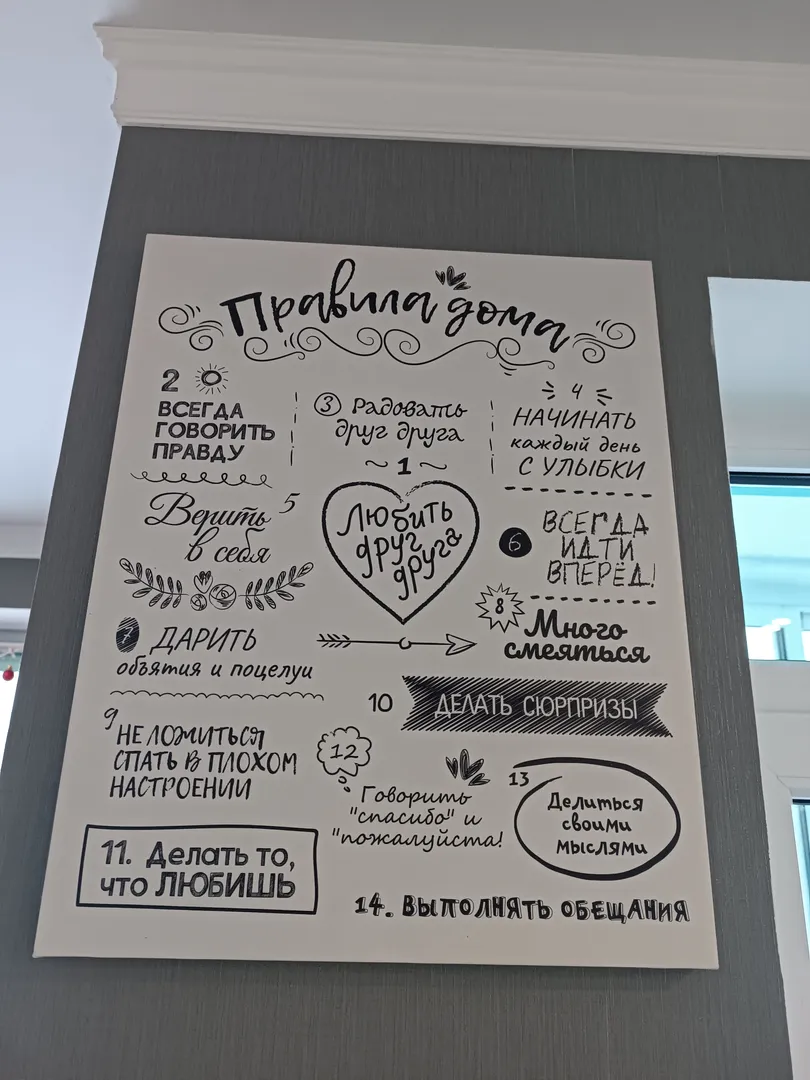 Правила дома
2
ВСЕГДА
ГОВОРИТЬ
ПРАВДУ
3 Радовать
друг друга
4
НАЧИНАТЬ
каждый день
С УЛЫБКИ
~ 1 ~
Любить
друг
друга
Верить 5
в себя
6
ВСЕГДА
ИДТИ
ВПЕРЁД!
7 ДАРИТЬ
объятия и поцелуи
8
Много
смеяться
9
НЕ ЛОЖИТЬСЯ
СПАТЬ В ПЛОХОМ
НАСТРОЕНИИ
10 ДЕЛАТЬ СЮРПРИЗЫ
11. Делать то,
что ЛЮБИШЬ
12
Говорить
"спасибо" и
"пожалуйста!
13
Делиться
своими
мыслями
14. ВЫПОЛНЯТЬ ОБЕЩАНИЯ